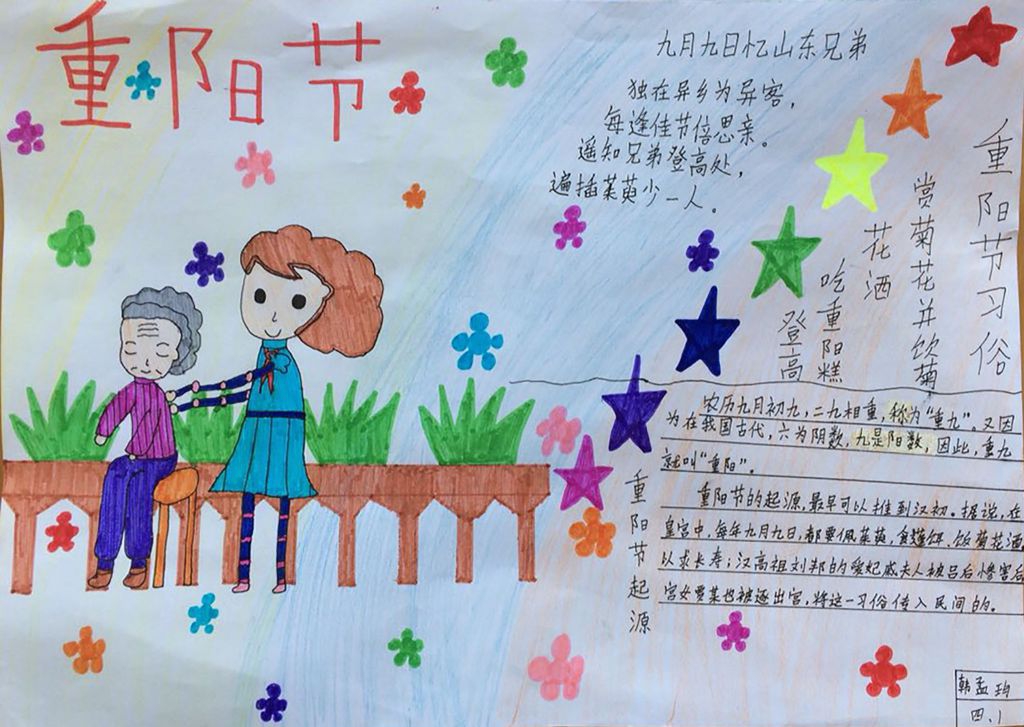 重阳节
九月九日忆山东兄弟
独在异乡为异客，
每逢佳节倍思亲。
遥知兄弟登高处，
遍插茱萸少一人。
重阳节习俗
赏菊花并饮菊
花酒
吃重阳糕
登高
农历九月初九，二九相重，称为“重九”。又因
为在我国古代，六为阴数，九是阳数，因此，重九
就叫“重阳”。
重阳节的起源，最早可以推到汉初。据说，在
皇宫中，每年九月九日，都要佩茱萸，食蓬饵、饮菊花酒，
以求长寿；汉高祖刘邦的爱妃戚夫人被吕后惨害后
宫女贾某也被逐出宫，将这一习俗传入民间的。
重阳节起源
韩孟
四.1